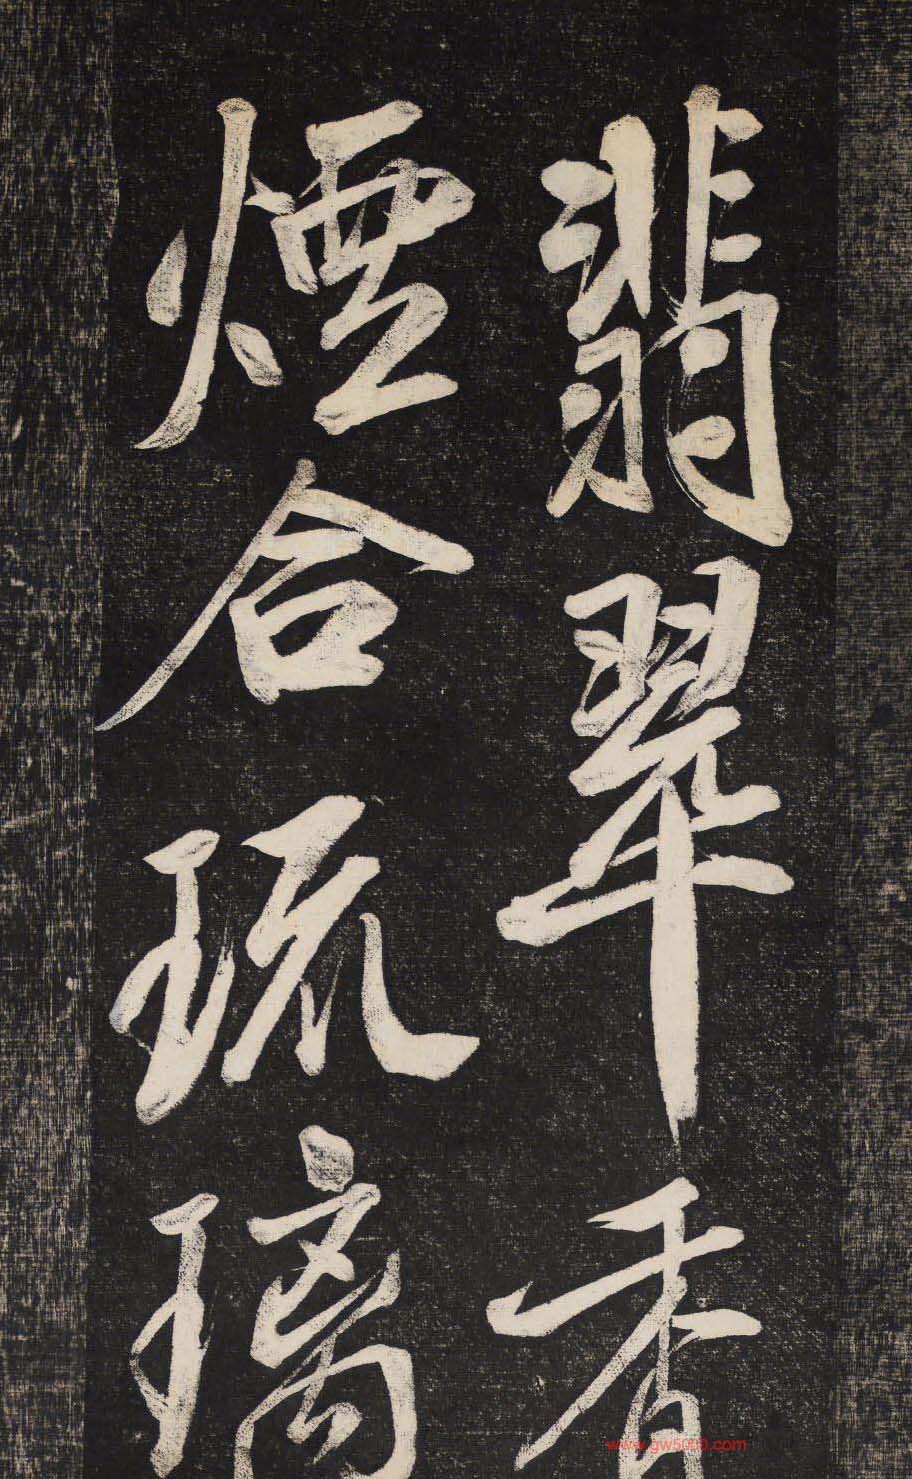 翡翠香
煙合琉璃
www.gw5000.com